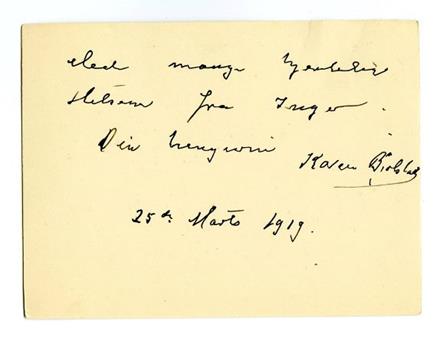 Med mange hjertelige
Hilsener fra Inger.
Din hengivne
Karen
25de Marts 1919.